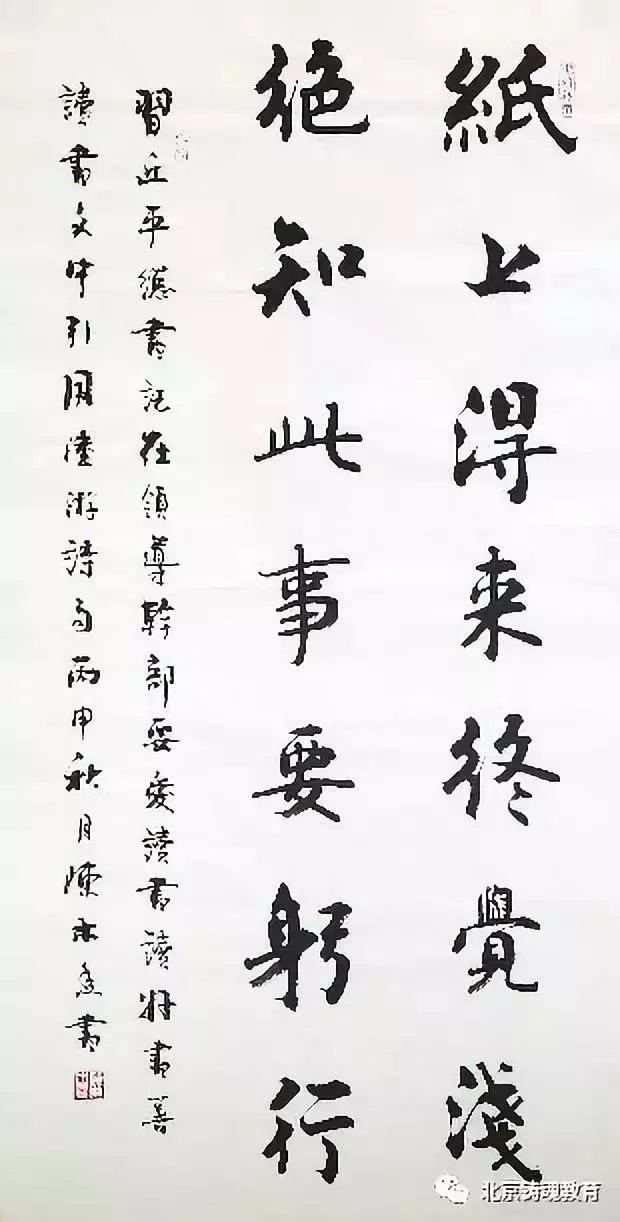 紙上得来终覺淺
绝知此事要躬行
習近平總書記在領導幹部要爱讀書讀好書善
讀書文中引用陸游詩句丙申秋月陳亦書
北京铸魂教育